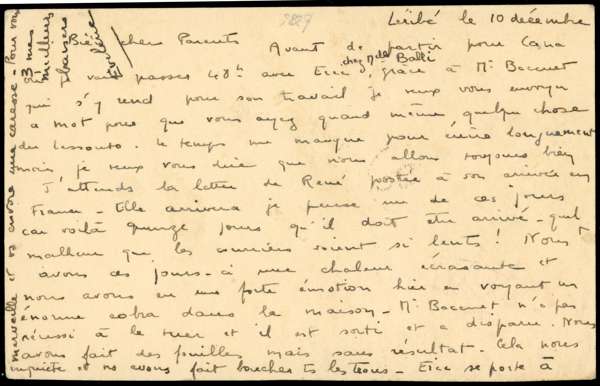 9227
Léribé le 10 décembre
Bien chers Parents Avant de partir pour Cana
chez Mde Balli
passer 48h avec Eric, grâce à Mr Bocquet
qui s'y rend pour son travail je veux vous envoyer
ce mot pour que vous ayez quand même quelque chose
du Lessouto. Le temps me manque pour écrire longuement
mais je veux vous dire que nous allons toujours bien
J'attends la lettre de René postée à son arrivée en
France - Elle arrivera je pense un de ces jours
car voilà quinze jours qu'il doit être arrivé - quel
malheur que les courriers soient si lents ! Nous
avons ces jours-ci une chaleur écrasante et
nous avons eu une forte émotion hier en voyant un
énorme cobra dans la maison - Mr Bocquet n'a pas
réussi à le tuer et il est sorti et a disparu. Nous
avons fait des fouilles mais sans résultat. Cela nous
inquiète et ns avons fait boucher ts les trous - Eric se porte à
merveille et vs envoie une caresse - Pour vous
mes
meilleurs
baisers